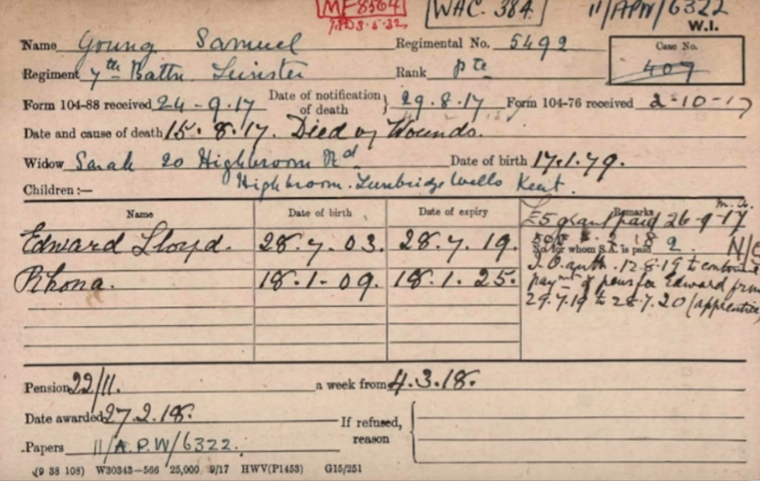 MF8564 WAC. 384. 11/APW/6322
W.I.
Name Young Samuel Regimental No. 5492 Case No.
Regiment 7th Battn. Leinster Rank Pte 407
Form 104-88 received 24-9-17 Date of notification of death } 29.8.17 Form 104-76 received 2-10-17
Date and cause of death 15.8.17. Died of Wounds.
Widow Sarah 20 Highbroom Rd Date of birth 17.1.79.
Children:— Highbroom. Tunbridge Wells Kent.
Name Date of birth Date of expiry Remarks
£5 grant paid 26-9-17
Edward Lloyd. 28.7.03. 28.7.19.
No. for whom S.A. is paid 2. N/C
Rhona. 18.1.09. 18.1.25.
auth. 12.8.19 to
paymt of pens for Edward from
29.7.19 to 28.7.20 (apprentice
Pension 22/11. a week from 4.3.18.
Date awarded 27.2.18. If refused, reason
Papers 11/A.P.W/6322.
(9 38 108) W30343—566 25,000 9/17 HWV(P1453) G15/251